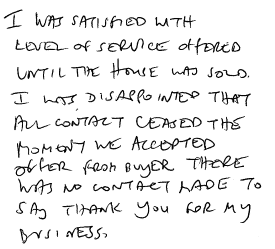 I WAS SATISFIED WITH
LEVEL OF SERVICE OFFERED
UNTIL THE HOUSE WAS SOLD.
I WAS DISAPPOINTED THAT
ALL CONTACT CEASED THE
MOMENT WE ACCEPTED
OFFER FROM BUYER THERE
WAS NO CONTACT MADE TO
SAY THANK YOU FOR MY
BUSINESS.